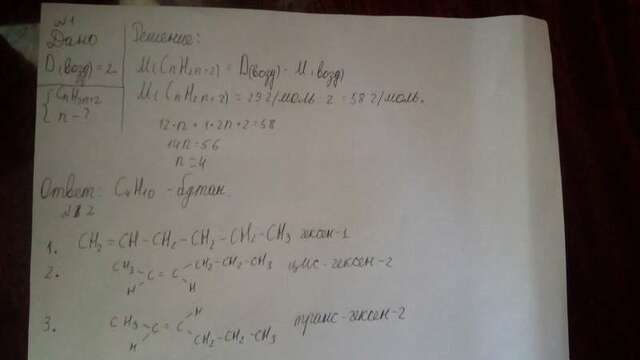 №1
Дано
D(возд)=2
CnH2n+2
n-?
Решение:
M(CnH2n+2) = D(возд) · M(возд)
M(CnH2n+2) = 29 г/моль · 2 = 58 г/моль.
12·n + 1·2n+2=58
14n=56
n=4
Ответ: C4H10 - бутан.
№2
1. CH2=CH-CH2-CH2-CH2-CH3 гексен-1
2. CH3 C=C CH2-CH2-CH3 цис-гексен-2
H H
3. H
CH3 C=C транс-гексен-2
H CH2-CH2-CH3